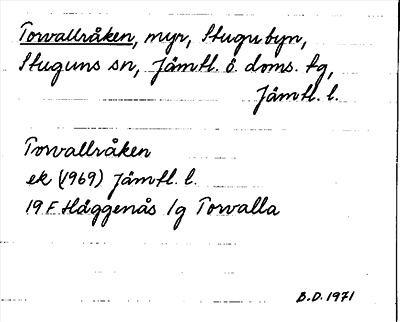 Torvallråken, myr, Stugubyn,
Stuguns sn, Jämtl. ö. doms. tg,
Jämtl. l.
Torvallråken
ek (1969) Jämtl. l.
19 F Häggenås 1g Torvalla
B.D. 1971